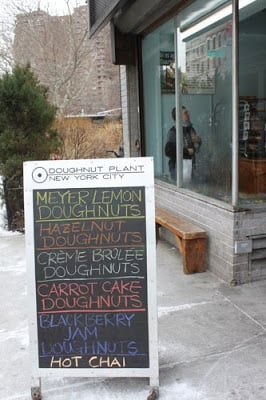 DOUGHNUT PLANT
NEW YORK CITY
MEYER LEMON
DOUGHNUTS
HAZELNUT
DOUGHNUTS
CRÈME BRÛLÉE
DOUGHNUTS
CARROT CAKE
DOUGHNUTS
BLACKBERRY
JAM
DOUGHNUTS
HOT CHAI